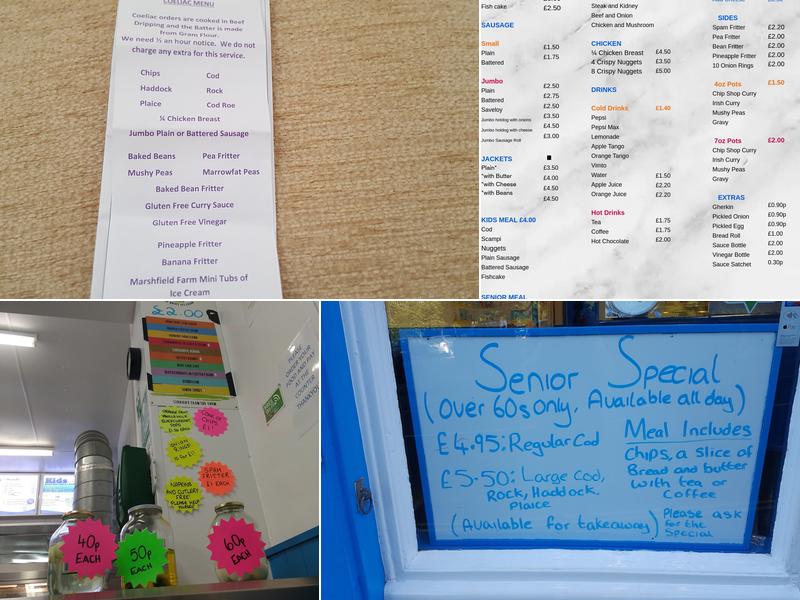 COELIAC MENU
Coeliac orders are cooked in Beef
Dripping and the Batter is made
from Gram Flour.
We need ½ an hour notice. We do not
charge any extra for this service.
Chips Cod
Haddock Rock
Plaice Cod Roe
¼ Chicken Breast
Jumbo Plain or Battered Sausage
Baked Beans Pea Fritter
Mushy Peas Marrowfat Peas
Baked Bean Fritter
Gluten Free Curry Sauce
Gluten Free Vinegar
Pineapple Fritter
Banana Fritter
Marshfield Farm Mini Tubs of
Ice Cream
Fish cake £2.50
SAUSAGE
Small
Plain £1.50
Battered £1.75
Jumbo
Plain £2.50
Battered £2.75
Saveloy £2.50
Jumbo hotdog with onions £3.50
Jumbo hotdog with cheese £4.50
Jumbo Sausage Roll £3.00
JACKETS
Plain* £3.50
*with Butter £4.00
*with Cheese £4.50
*with Beans £4.50
KIDS MEAL £4.00
Cod
Scampi
Nuggets
Plain Sausage
Battered Sausage
Fishcake
SENIOR MEAL
Steak and Kidney
Beef and Onion
Chicken and Mushroom
CHICKEN
¼ Chicken Breast £4.50
4 Crispy Nuggets £3.50
8 Crispy Nuggets £5.00
DRINKS
Cold Drinks £1.40
Pepsi
Pepsi Max
Lemonade
Apple Tango
Orange Tango
Vimto
Water £1.50
Apple Juice £2.20
Orange Juice £2.20
Hot Drinks
Tea £1.75
Coffee £1.75
Hot Chocolate £2.00
SIDES
Spam Fritter £2.20
Pea Fritter £2.00
Bean Fritter £2.00
Pineapple Fritter £2.00
10 Onion Rings £2.00
4oz Pots £1.50
Chip Shop Curry
Irish Curry
Mushy Peas
Gravy
7oz Pots £2.00
Chip Shop Curry
Irish Curry
Mushy Peas
Gravy
EXTRAS
Gherkin £0.90p
Pickled Onion £0.90p
Pickled Egg £0.90p
Bread Roll £1.00
Sauce Bottle £2.00
Vinegar Bottle £2.00
Sauce Satchet 0.30p
£2.00
STRAIGHT FROM THE FARM
CONE OF
CHIPS
£1!
ONION
RINGS
SPAM
FRITTER
£1 EACH
NAPKINS
AND CUTLERY
FREE
PLEASE HELP
PLEASE
ORDER YOUR
FOOD AND PAY
AT THE
COUNTER
THANKYOU
Kids
40p
EACH
50p
EACH
60p
EACH
Senior Special
(Over 60s only, Available all day)
£4.95: Regular Cod
£5.50: Large Cod,
Rock, Haddock,
Plaice
(Available for takeaway)
Meal Includes
Chips, a slice of
Bread and butter
with tea or
Coffee
Please ask
for the
Special